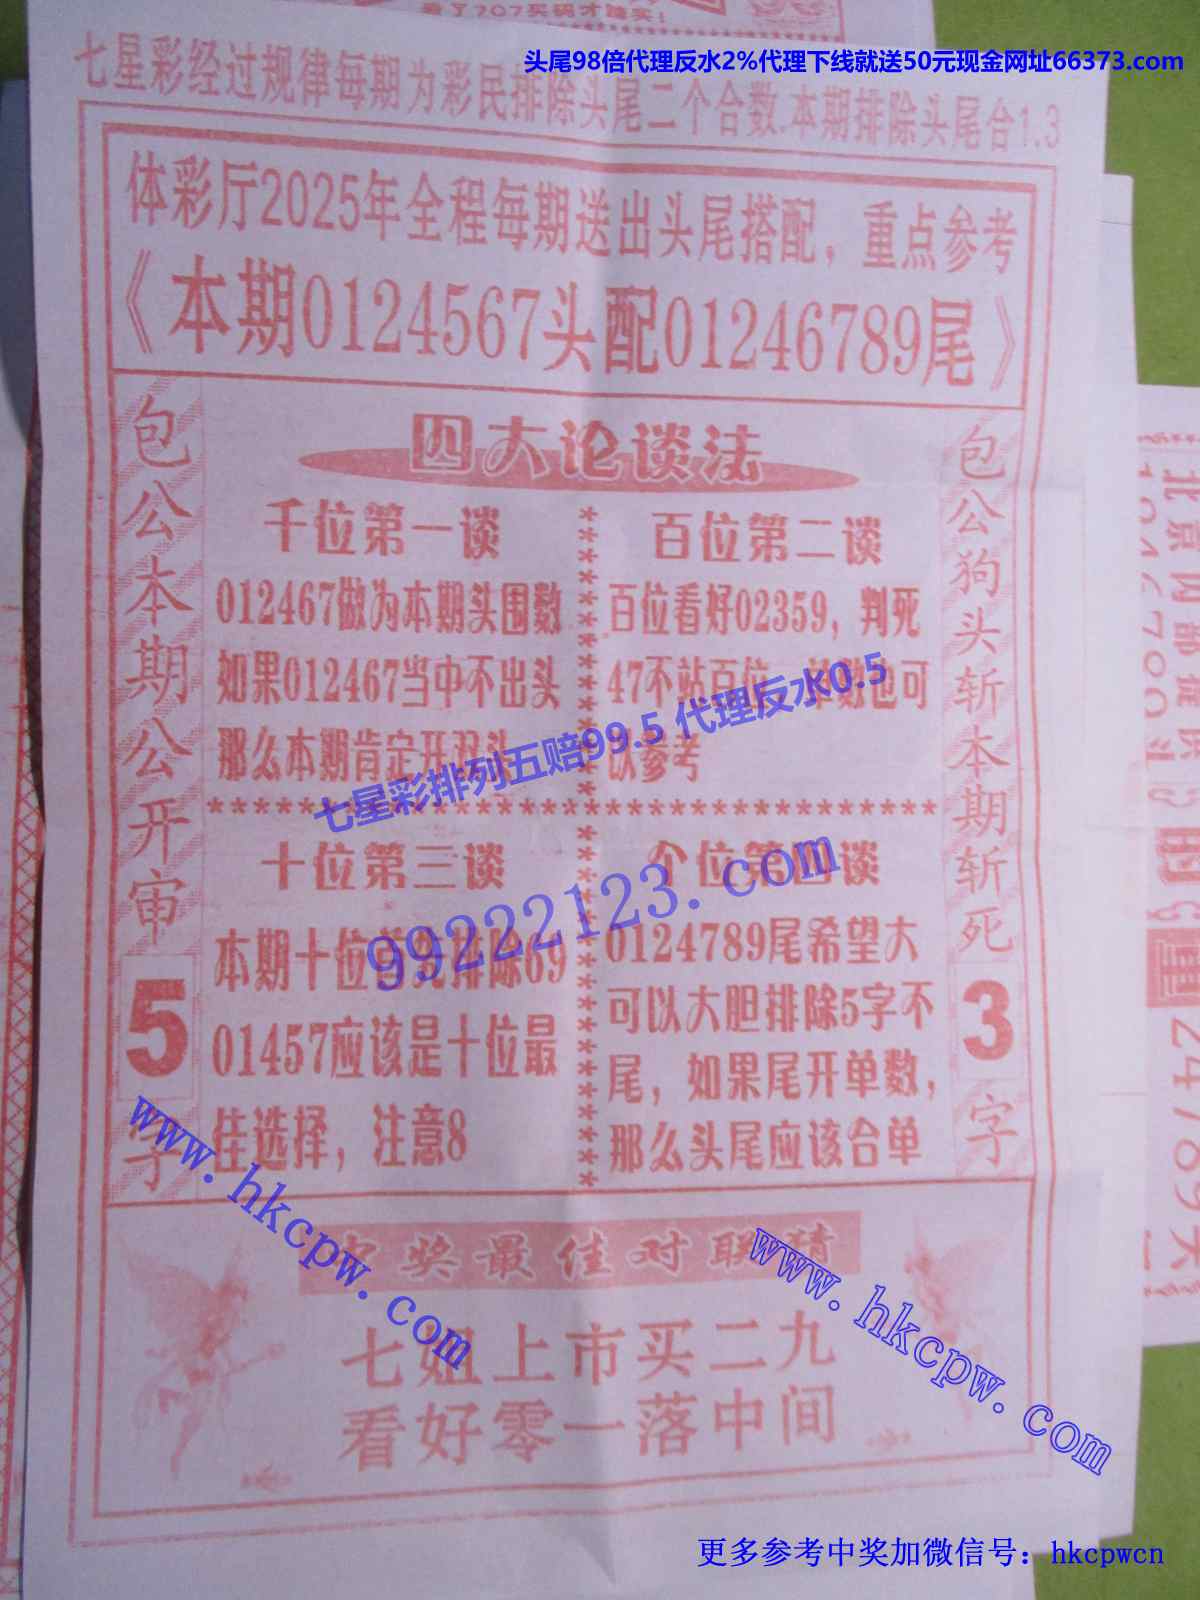 看了707买码才踏实！
头尾98倍代理反水2%代理下线就送50元现金网址66373.com
七星彩经过规律每期为彩民排除头尾二个合数.本期排除头尾合1.3
体彩厅2025年全程每期送出头尾搭配，重点参考
《本期0124567头配01246789尾》
包公本期公开审
5
字
四大论谈法
千位第一谈
012467做为本期头围数
如果012467当中不出头
那么本期肯定开双头
百位第二谈
百位看好02359，判死
47不站百位，单数也可
以参考
七星彩排列五赔99.5 代理反水0.5
十位第三谈
本期十位首先排除69
01457应该是十位最
佳选择，注意8
99222123.com
个位第四谈
0124789尾希望大
可以大胆排除5字不
尾，如果尾开单数，
那么头尾应该合单
包公狗头斩本期斩死
3
字
www.hkcpw.com
中奖最佳对联猜
www.hkcpw.com
七姐上市买二九
看好零一落中间
更多参考中奖加微信号：hkcpwcn